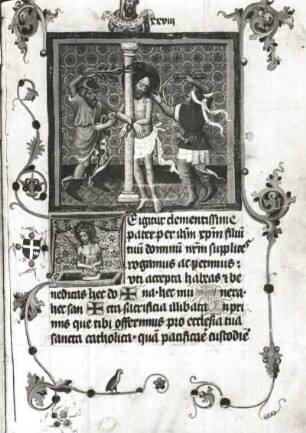 xxviii
E igitur clementissime
pater per ihm xpm filiū
tuū dominū nr̄m supplices
rogamus ac petimus ·
vti accepta habeas & be
nedicas hec do✠na · hec mu✠nera ·
hec san✠cta sacrificia illibata In pri
mis que tibi offerimus pro ecclesia tua
sancta catholica · quā pacificare custodire